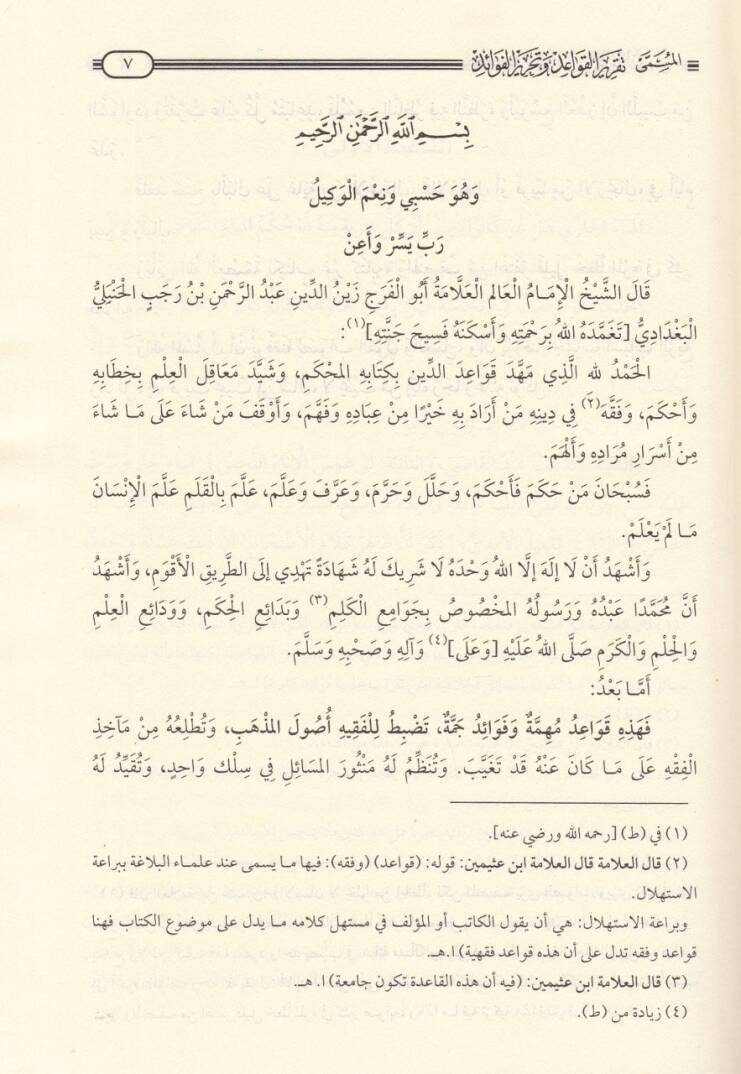 المُسَمَّى تَقْرِيرَ القَوَاعِدِ وَتَحْرِيرَ الفَوَائِدِ ٧
بِسْمِ اللَّهِ الرَّحْمَٰنِ الرَّحِيمِ
وَهُوَ حَسْبِي وَنِعْمَ الْوَكِيلُ
رَبِّ يَسِّرْ وَأَعِنْ
قَالَ الشَّيْخُ الْإِمَامُ الْعَالِم الْعَلَّامَةُ أَبُو الْفَرَجِ زَيْنُ الدِّينِ عَبْدُ الرَّحْمَنِ بْنُ رَجَبٍ الْحَنْبَلِيُّ
الْبَغْدَادِيُّ [تَغَمَّدَهُ اللهُ بِرَحْمَتِهِ وَأَسْكَنَهُ فَسِيحَ جَنَّتِهِ](١):
الْحَمْدُ لله الَّذِي مَهَّدَ قَوَاعِدَ الدِّينِ بِكِتَابِهِ المُحْكَمِ، وَشَيَّدَ مَعَاقِلَ الْعِلْمِ بِخِطَابِهِ
وَأَحْكَمَ، وَفَقَّهَ(٢) فِي دِينِهِ مَنْ أَرَادَ بِهِ خَيْرًا مِنْ عِبَادِهِ وَفَهَّمَ، وَأَوْقَفَ مَنْ شَاءَ عَلَى مَا شَاءَ
مِنْ أَسْرَارِ مُرَادِهِ وَأَلْهَمَ.
فَسُبْحَانَ مَنْ حَكَمَ فَأَحْكَمَ، وَحَلَّلَ وَحَرَّمَ، وَعَرَّفَ وَعَلَّمَ، عَلَّمَ بِالْقَلَمِ عَلَّمَ الْإِنْسَانَ
مَا لَمْ يَعْلَمْ.
وَأَشْهَدُ أَنْ لَا إلَهَ إلَّا اللهُ وَحْدَهُ لَا شَرِيكَ لَهُ شَهَادَةً تَهْدِي إلَى الطَّرِيقِ الْأَقْوَمِ، وَأَشْهَدُ
أَنَّ مُحَمَّدًا عَبْدُهُ وَرَسُولُهُ المخْصُوصُ بِجَوَامِعِ الْكَلِمِ(٣) وَبَدَائِعِ الْحِكَمِ، وَوَدَائِعِ الْعِلْمِ
وَالْحِلْمِ وَالْكَرَمِ صَلَّى اللهُ عَلَيْهِ [وَعَلَى](٤) وَآلِهِ وَصَحْبِهِ وَسَلَّمَ.
أَمَّا بَعْدُ:
فَهَذِهِ قَوَاعِدُ مُهِمَّةٌ وَفَوَائِدُ جَمَّةٌ، تَضْبِطُ لِلْفَقِيهِ أُصُولَ المَذْهَبِ، وَتُطْلِعُهُ مِنْ مَآخِذِ
الْفِقْهِ عَلَى مَا كَانَ عَنْهُ قَدْ تَغَيَّبَ. وَتُنَظِّمُ لَهُ مَنْثُورَ المَسَائِلِ فِي سِلْك وَاحِدٍ، وَتُقَيِّدُ لَهُ
(١) في (ط) [رحمه الله ورضي عنه].
(٢) قال العلامة قال العلامة ابن عثيمين: قوله: (قواعد) (وفقه): فيها ما يسمى عند علماء البلاغة ببراعة
الاستهلال.
وبراعة الاستهلال: هي أن يقول الكاتب أو المؤلف في مستهل كلامه ما يدل على موضوع الكتاب فهنا
قواعد وفقه تدل على أن هذه قواعد فقهية) ا.هـ.
(٣) قال العلامة ابن عثيمين: (فيه أن هذه القاعدة تكون جامعة) ا. هـ.
(٤) زيادة من (ط).